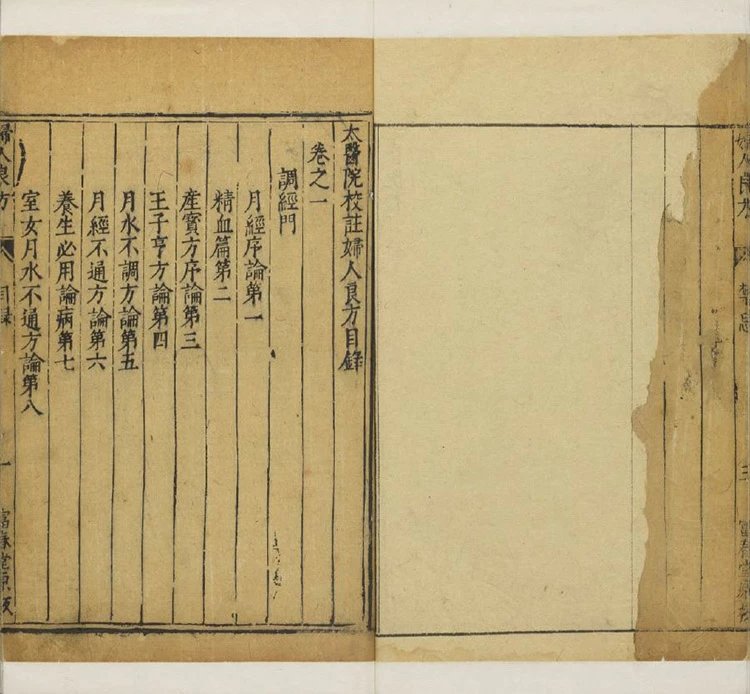 太醫院校註婦人良方目錄
卷之一
調經門
月經序論第一
精血篇第二
產寶方序論第三
王子亨方論第四
月水不調方論第五
月經不通方論第六
養生必用論病第七
室女月水不通方論第八
婦人良方
目錄
一
富春堂原板
三